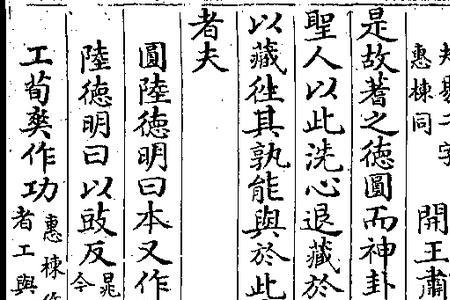 惠棟同
開王肅
是故蓍之德圓而神卦
聖人以此洗心退藏於
以藏徃其孰能與於此
者夫
圓陸德明曰本又作
陸德明曰以豉反晁
今
工荀爽作功惠棟作
者工與